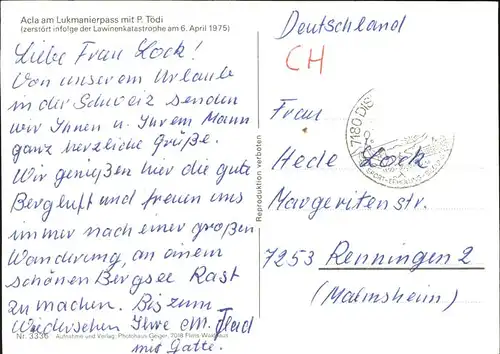 Acla am Lukmanierpass mit P. Tödi
(zerstört infolge der Lawinenkatastrophe am 6. April 1975)
Liebe Frau Lock!
Von unserem Urlaube
in der Schweiz senden
wir Ihnen u. Ihrem Mann
ganz herzliche Grüße.
Wir genießen hier die gute
Bergluft und freuen uns
immer nach einer großen
Wanderung, an einem
schönen Bergsee Rast
zu machen. Bis zum
Wiedersehen Ihre
mit Gatte.
Nr. 3336 Aufnahme und Verlag: Photohaus Geiger, 7018 Flims Waldhaus
Reproduktion verboten
Deutschland
CH
7180 DIS
Frau
Hede Lock
Margeritenstr.
7253 Renningen 2
(Malmsheim)